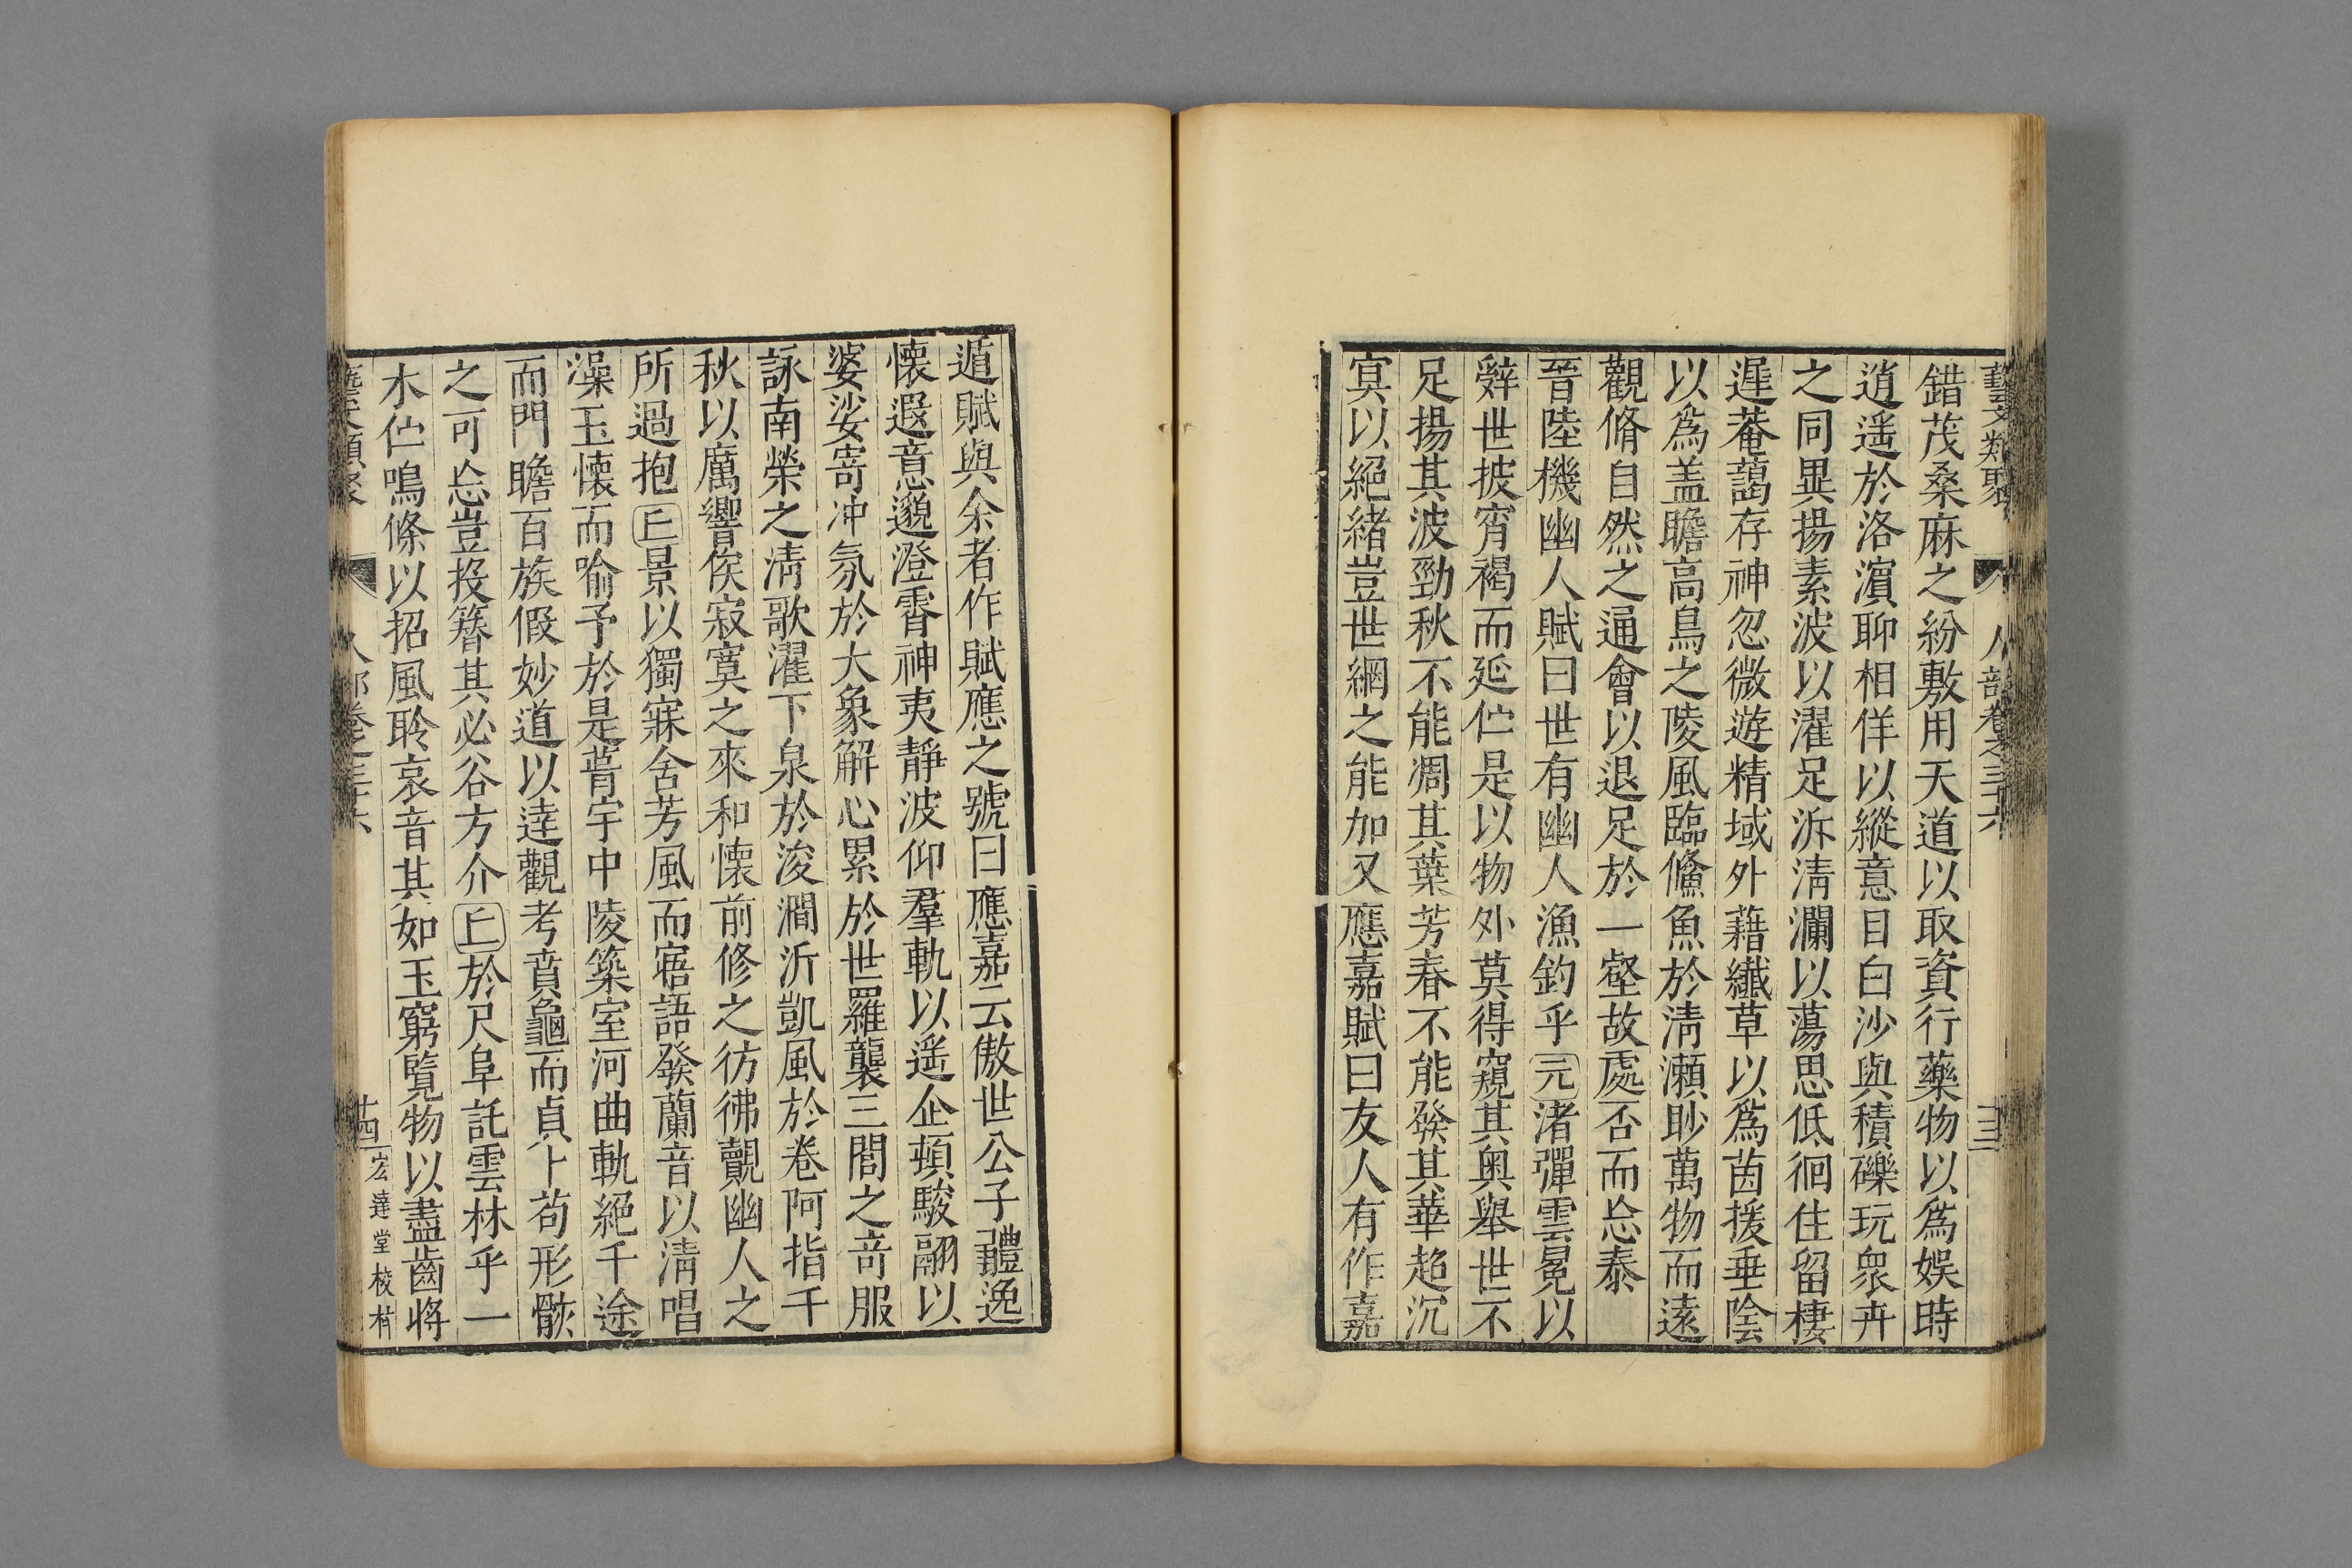 藝文類聚 人部卷之三十六
錯茂桑麻之紛敷用天道以取資行藥物以爲娛時
逍遥於洛濵聊相佯以縱意目白沙與積礫玩衆卉
之同異揚素波以濯足泝淸瀾以蕩思低徊住留棲
遲菴藹存神忽微遊精域外藉纎草以爲茵援垂陰
以爲盖瞻高鳥之陵風臨儵魚於淸瀨眇萬物而遠
觀脩自然之通會以退足於一壑故處否而忘泰
晉陸機幽人賦曰世有幽人漁釣乎元渚彈雲冕以
辤世披宵褐而延伫是以物外莫得窺其奥舉世不
足揚其波勁秋不能凋其葉芳春不能發其華超沉
㝠以絕緒豈世網之能加又應嘉賦曰友人有作嘉
遁賦與余者作賦應之號曰應嘉云傲世公子體逸
懷遐意邈澄霄神夷靜波仰羣軌以遥企頓駿翮以
婆娑寄冲氛於大象解心累於世羅襲三閭之奇服
詠南榮之淸歌濯下泉於浚澗泝凱風於卷阿指千
秋以厲響俟寂寞之來和懷前修之彷彿覿幽人之
所過抱丘景以獨寐含芳風而寤語發蘭音以淸唱
澡玉懷而喻予於是葺宇中陵築室河曲軌絕千途
而門瞻百族假妙道以達觀考賁龜而貞卜苟形骸
之可忘豈投簪其必谷方介丘於尺阜託雲林乎一
木伫鳴條以招風聆哀音其如玉窮覽物以盡齒將
卷之三十六 廿四 宏達堂校栞